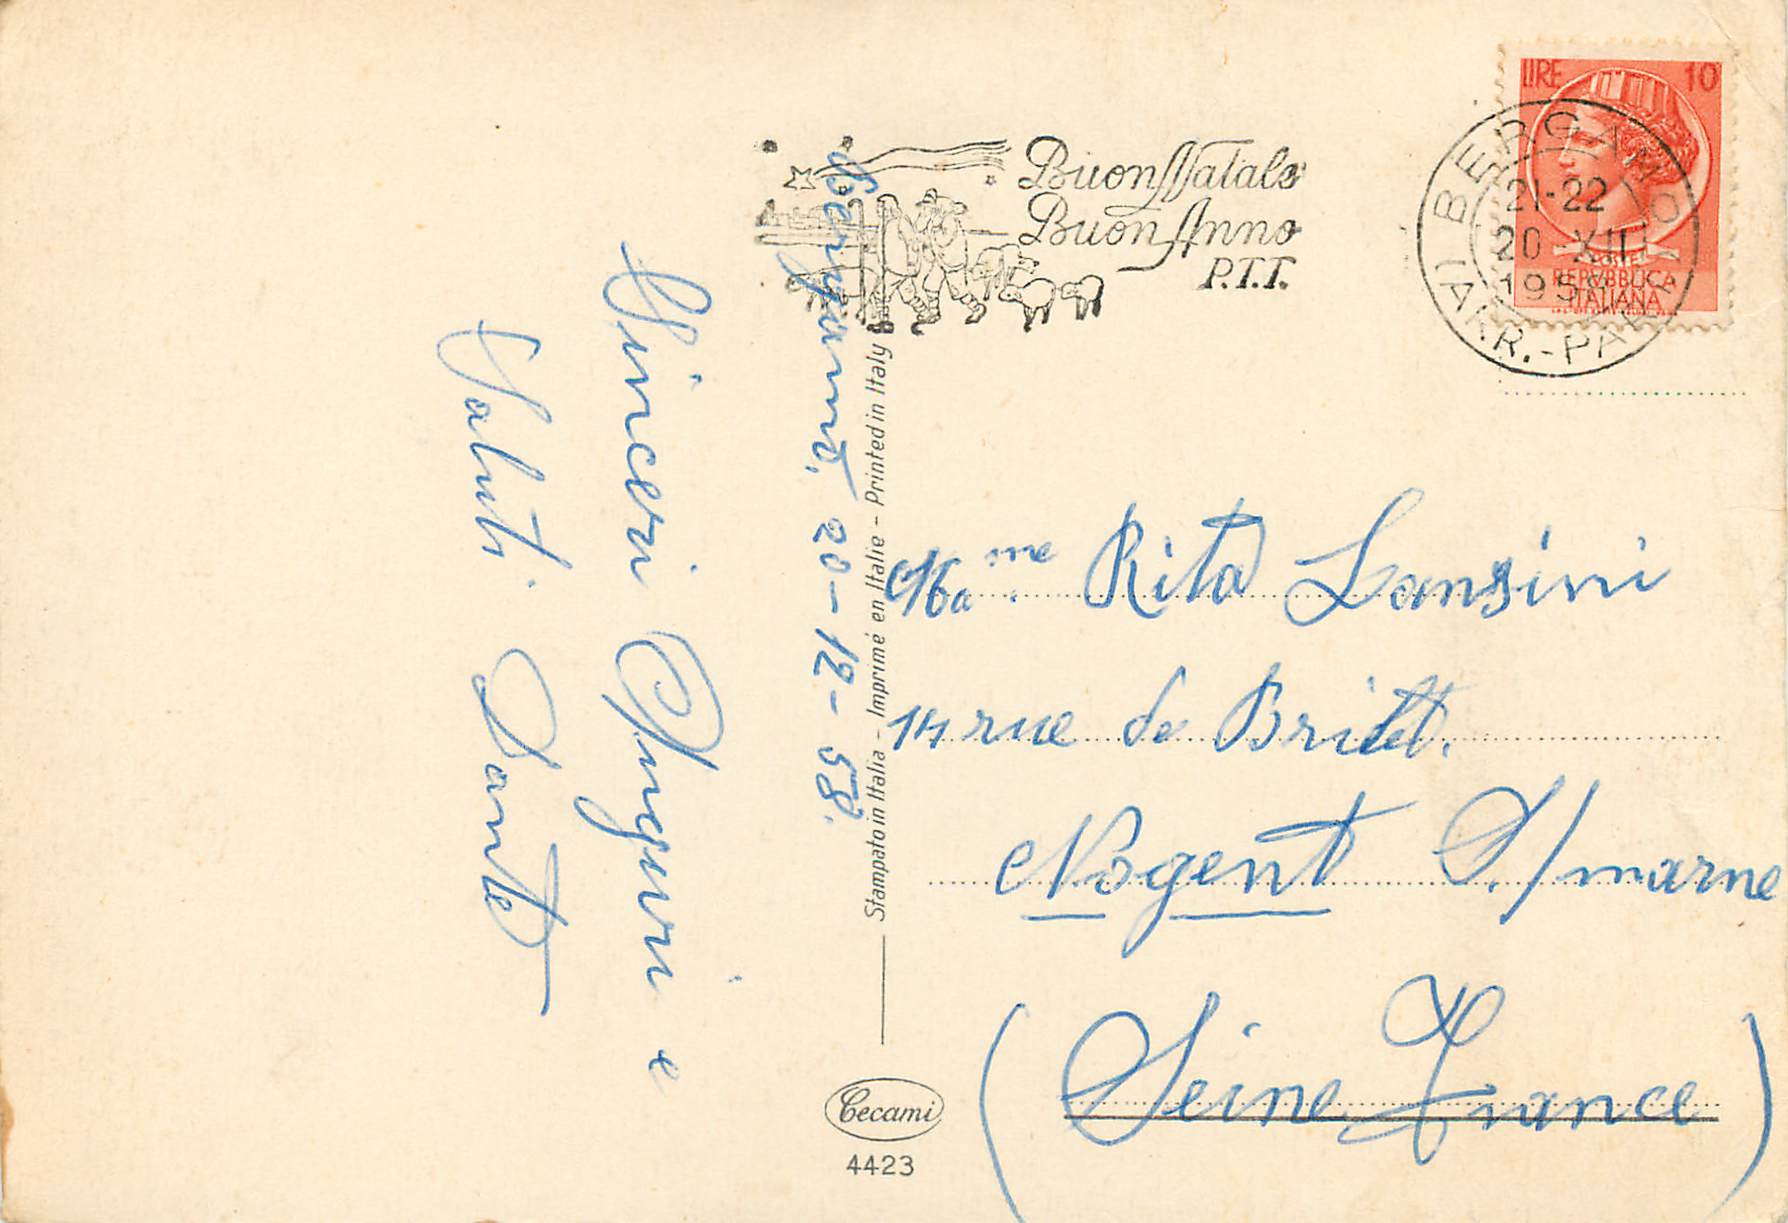 Bergamo, 20-12-58.
Sinceri Auguri e
Saluti. Dante
Buon Natale
Buon Anno
P.T.T.
LIRE 10
REPVBBLICA
ITALIANA
BERGAMO
21-22
20 XII
1958
Stampato in Italia - Imprimé en Italie - Printed in Italy
Ma.me Rita Lansini
14 rue de
Nogent S./marne
(Seine France)
Cecami
4423